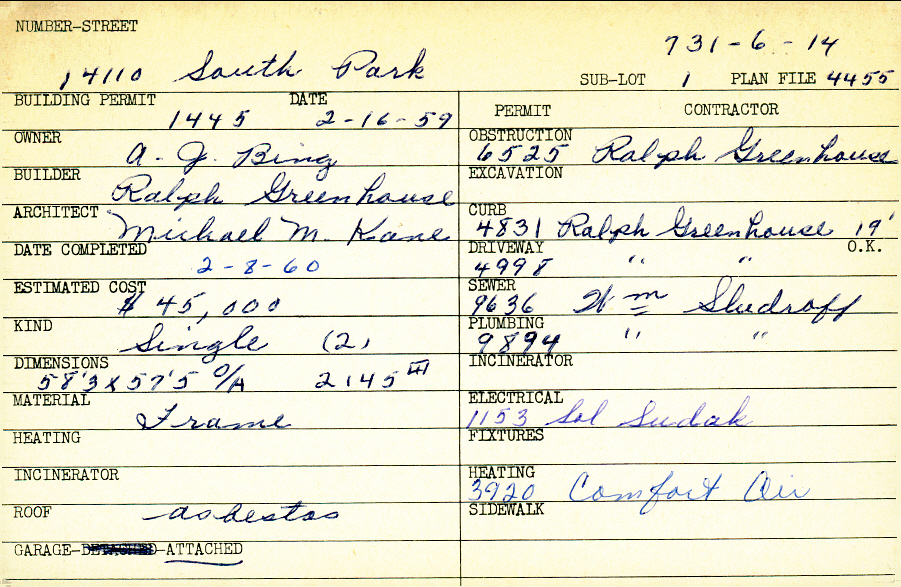 NUMBER-STREET
731-6-14
14110 South Park
SUB-LOT 1 PLAN FILE 4455
BUILDING PERMIT DATE
1445 2-16-59
OWNER
A. J. Bing
BUILDER
Ralph Greenhouse
ARCHITECT
Michael M. Kane
DATE COMPLETED
2-8-60
ESTIMATED COST
$ 45,000
KIND
Single (2)
DIMENSIONS
58'3 x 57'5 O/A 2145
MATERIAL
Frame
HEATING
INCINERATOR
ROOF
asbestos
GARAGE-DETACHED-ATTACHED
PERMIT CONTRACTOR
OBSTRUCTION
6525 Ralph Greenhouse
EXCAVATION
CURB
4831 Ralph Greenhouse 19'
DRIVEWAY O.K.
4998 " "
SEWER
9636 Wm Sludroff
PLUMBING
9894 " "
INCINERATOR
ELECTRICAL
1153 Sol Sudak
FIXTURES
HEATING
3920 Comfort Air
SIDEWALK